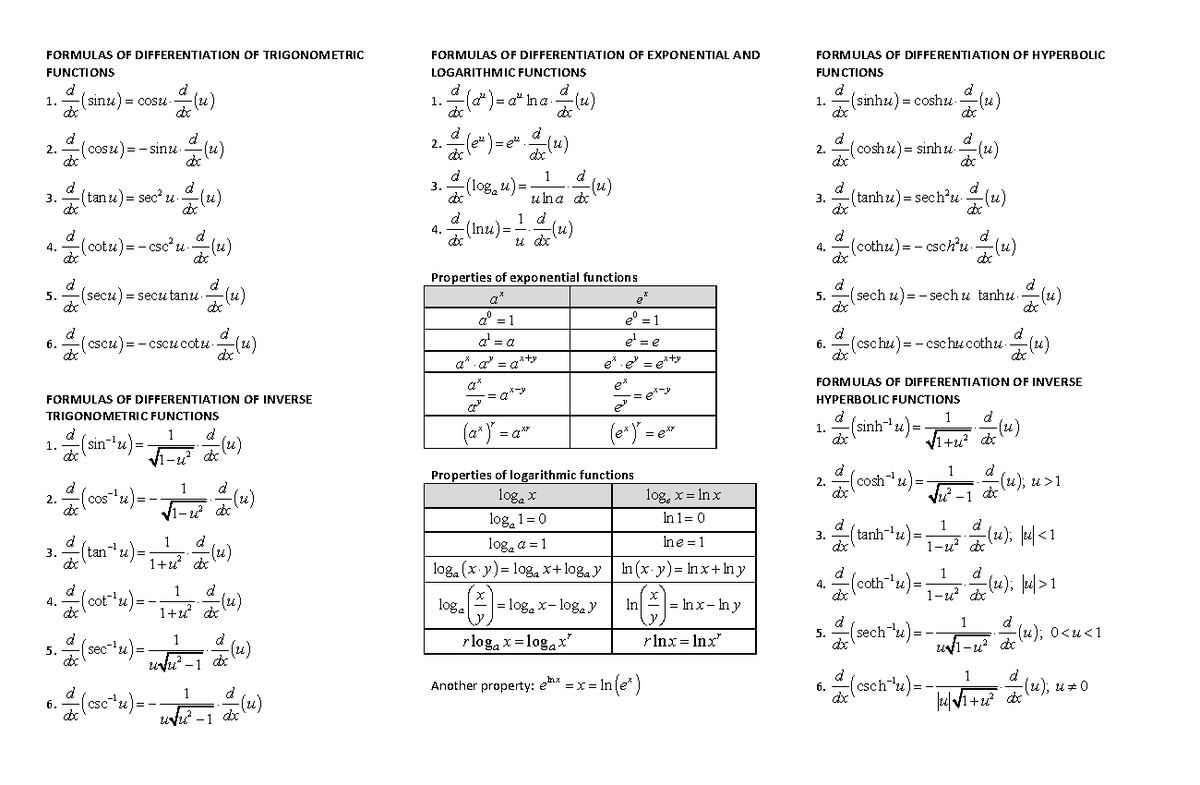 FORMULAS OF DIFFERENTIATION OF TRIGONOMETRIC
FUNCTIONS
1. d/dx (sin u) = cos u · d/dx (u)
2. d/dx (cos u) = − sin u · d/dx (u)
3. d/dx (tan u) = sec² u · d/dx (u)
4. d/dx (cot u) = − csc² u · d/dx (u)
5. d/dx (sec u) = sec u tan u · d/dx (u)
6. d/dx (csc u) = − csc u cot u · d/dx (u)
FORMULAS OF DIFFERENTIATION OF INVERSE
TRIGONOMETRIC FUNCTIONS
1. d/dx (sin⁻¹ u) = 1/√(1−u²) · d/dx (u)
2. d/dx (cos⁻¹ u) = − 1/√(1−u²) · d/dx (u)
3. d/dx (tan⁻¹ u) = 1/(1+u²) · d/dx (u)
4. d/dx (cot⁻¹ u) = − 1/(1+u²) · d/dx (u)
5. d/dx (sec⁻¹ u) = 1/(u√(u²−1)) · d/dx (u)
6. d/dx (csc⁻¹ u) = − 1/(u√(u²−1)) · d/dx (u)
FORMULAS OF DIFFERENTIATION OF EXPONENTIAL AND
LOGARITHMIC FUNCTIONS
1. d/dx (aᵘ) = aᵘ ln a · d/dx (u)
2. d/dx (eᵘ) = eᵘ · d/dx (u)
3. d/dx (logₐ u) = 1/(u ln a) · d/dx (u)
4. d/dx (ln u) = 1/u · d/dx (u)
Properties of exponential functions
aˣ eˣ
a⁰ = 1 e⁰ = 1
a¹ = a e¹ = e
aˣ · aʸ = aˣ⁺ʸ eˣ · eʸ = eˣ⁺ʸ
aˣ/aʸ = aˣ⁻ʸ eˣ/eʸ = eˣ⁻ʸ
(aˣ)ʳ = aˣʳ (eˣ)ʳ = eˣʳ
Properties of logarithmic functions
logₐ x logₑ x = ln x
logₐ 1 = 0 ln 1 = 0
logₐ a = 1 ln e = 1
logₐ (x · y) = logₐ x + logₐ y ln (x · y) = ln x + ln y
logₐ (x/y) = logₐ x − logₐ y ln (x/y) = ln x − ln y
r logₐ x = logₐ xʳ r ln x = ln xʳ
Another property: e^(ln x) = x = ln (eˣ)
FORMULAS OF DIFFERENTIATION OF HYPERBOLIC
FUNCTIONS
1. d/dx (sinh u) = cosh u · d/dx (u)
2. d/dx (cosh u) = sinh u · d/dx (u)
3. d/dx (tanh u) = sech² u · d/dx (u)
4. d/dx (coth u) = − csch² u · d/dx (u)
5. d/dx (sech u) = − sech u tanh u · d/dx (u)
6. d/dx (csch u) = − csch u coth u · d/dx (u)
FORMULAS OF DIFFERENTIATION OF INVERSE
HYPERBOLIC FUNCTIONS
1. d/dx (sinh⁻¹ u) = 1/√(1+u²) · d/dx (u)
2. d/dx (cosh⁻¹ u) = 1/√(u²−1) · d/dx (u); u > 1
3. d/dx (tanh⁻¹ u) = 1/(1−u²) · d/dx (u); |u| < 1
4. d/dx (coth⁻¹ u) = 1/(1−u²) · d/dx (u); |u| > 1
5. d/dx (sech⁻¹ u) = − 1/(u√(1−u²)) · d/dx (u); 0 < u < 1
6. d/dx (csch⁻¹ u) = − 1/(|u|√(1+u²)) · d/dx (u); u ≠ 0